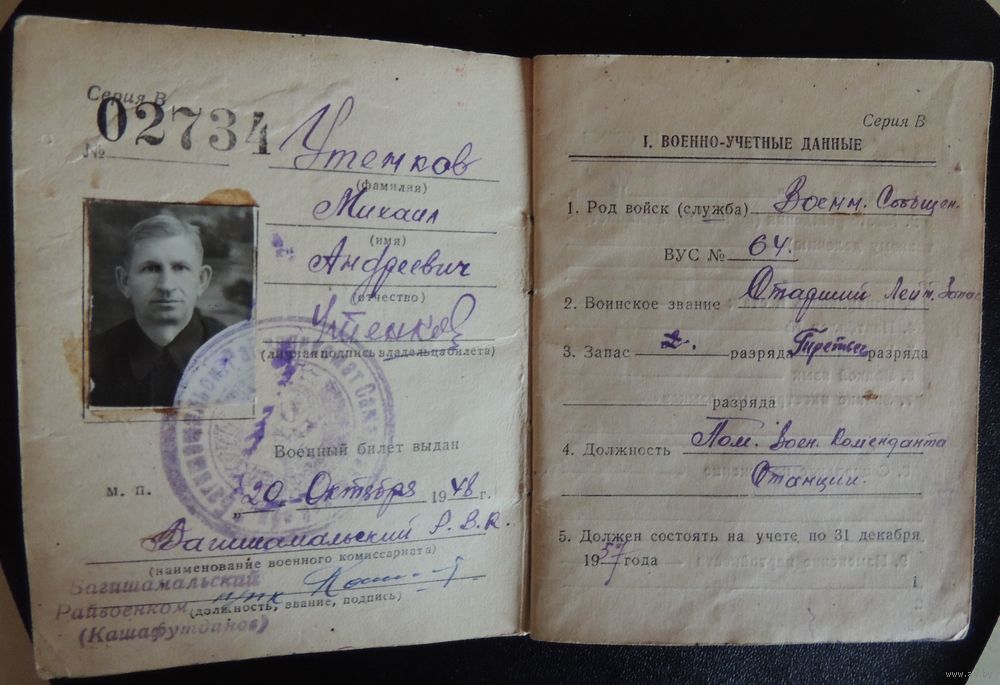 Серия В
02734
№
Утенков
(фамилия)
Михаил
(имя)
Андреевич
(отчество)
Утенков
(личная подпись владельца билета)
Военный билет выдан
м. п.
„20 Октября 1948 г.
Багишамальский Р.В.К.
(наименование военного комиссариата)
п/пк
(должность, звание, подпись)
Багишамальский
Райвоенком
(Кашафутдинов)
Серия В
I. ВОЕННО-УЧЕТНЫЕ ДАННЫЕ
1. Род войск (служба) Военн. Сообщен.
ВУС № 64.
2. Воинское звание Старший Лейт. Запас
3. Запас 2. разряда Третьего разряда
разряда
4. Должность Пом. Воен. Коменданта
Станции.
5. Должен состоять на учете по 31 декабря
19 года
1